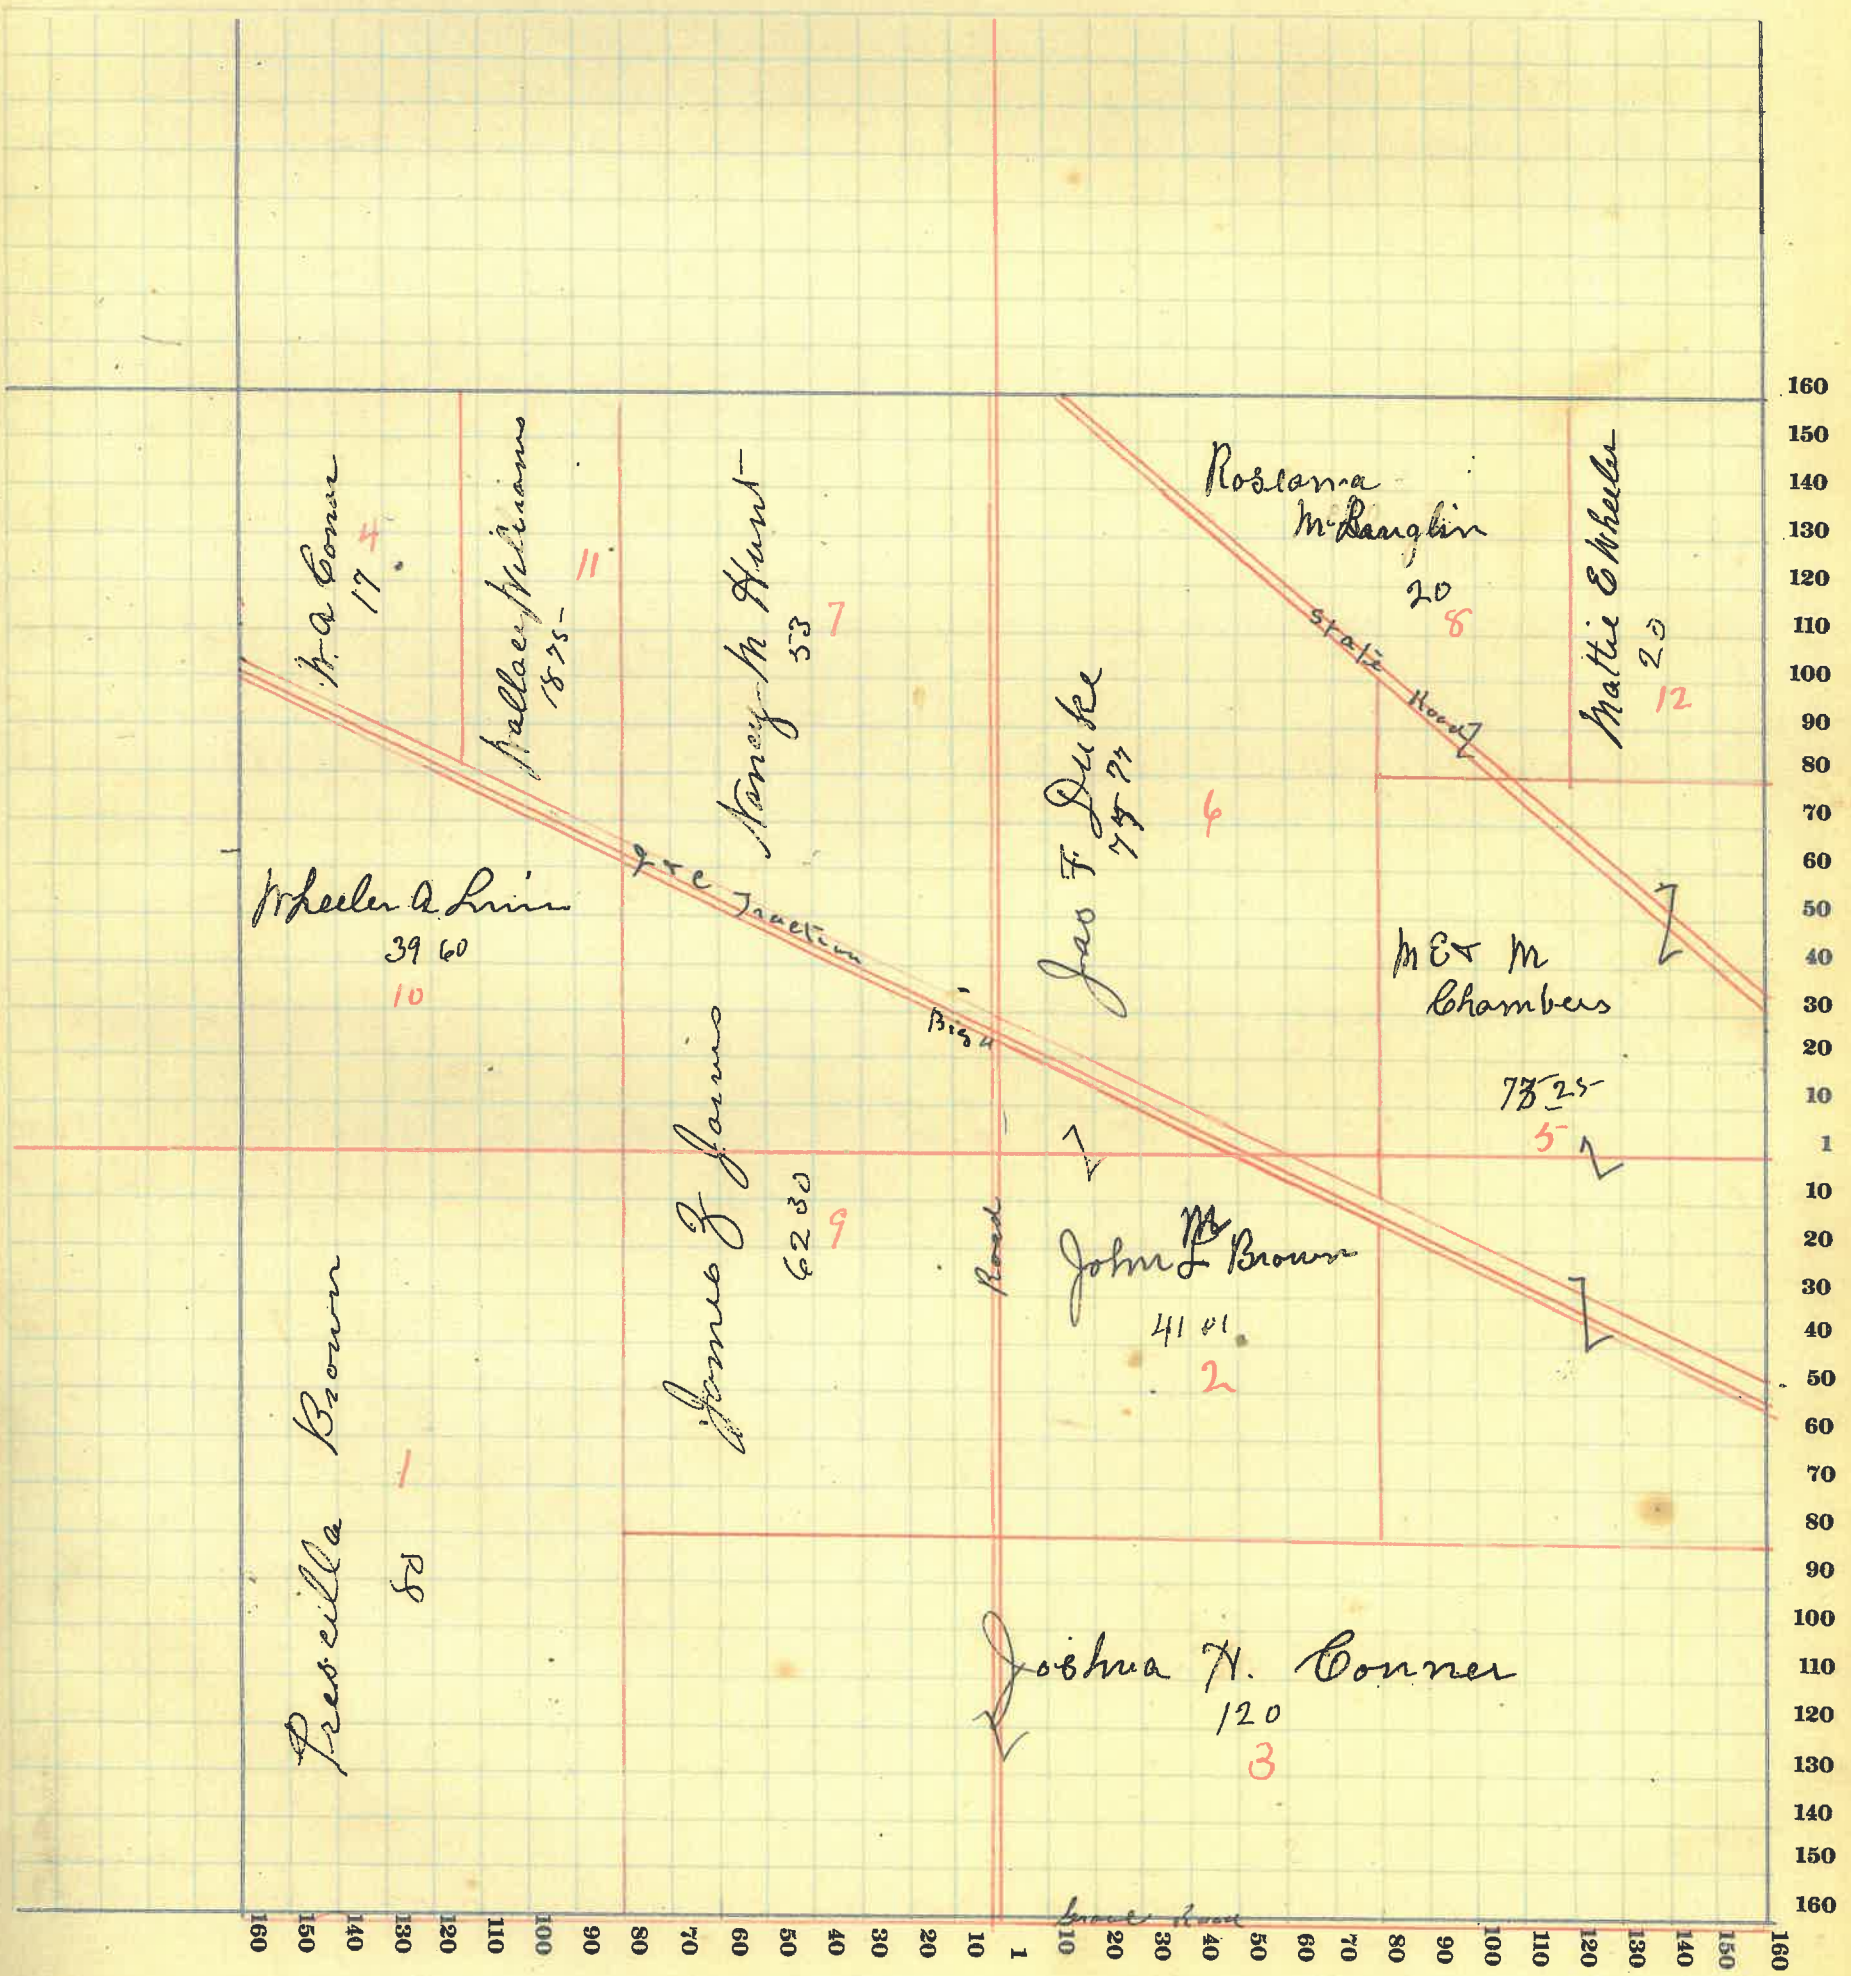 W. A. Conner
17
4
Wallace Williams
18 75
11
Nancy M Hunt
53
7
Roseanna
McLauglin
20
8
Mattie E Wheeler
20
12
State Road
Jas F Duke
6
Wheeler A
39 60
10
I & C Traction
Big 4
M E & M
Chambers
5
James Z Janes
62 30
9
Road
John Brown
41 01
2
Prescilla Brown
80
1
Joshua H. Conner
120
3
Road
160
150
140
130
120
110
100
90
80
70
60
50
40
30
20
10
1
10
20
30
40
50
60
70
80
90
100
110
120
130
140
150
160
160 150 140 130 120 110 100 90 80 70 60 50 40 30 20 10 1 10 20 30 40 50 60 70 80 90 100 110 120 130 140 150 160